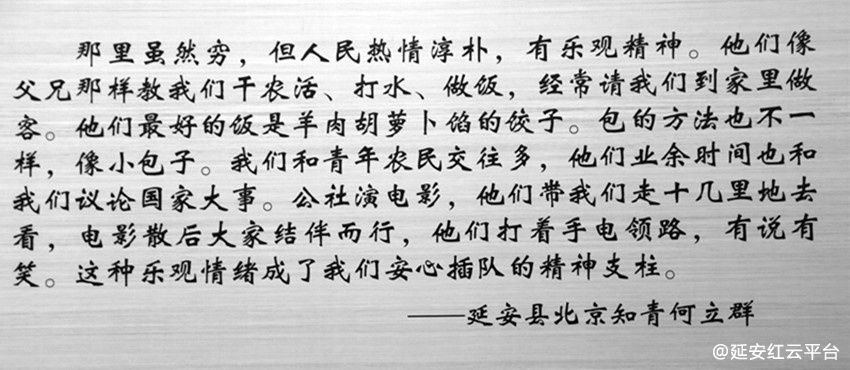 那里虽然穷，但人民热情淳朴，有乐观精神。他们像
父兄那样教我们干农活、打水、做饭，经常请我们到家里做
客。他们最好的饭是羊肉胡萝卜馅的饺子。包的方法也不一
样，像小包子。我们和青年农民交往多，他们业余时间也和
我们议论国家大事。公社演电影，他们带我们走十几里地去
看，电影散后大家结伴而行，他们打着手电领路，有说有
笑。这种乐观情绪成了我们安心插队的精神支柱。
——延安县北京知青何立群
@延安红云平台